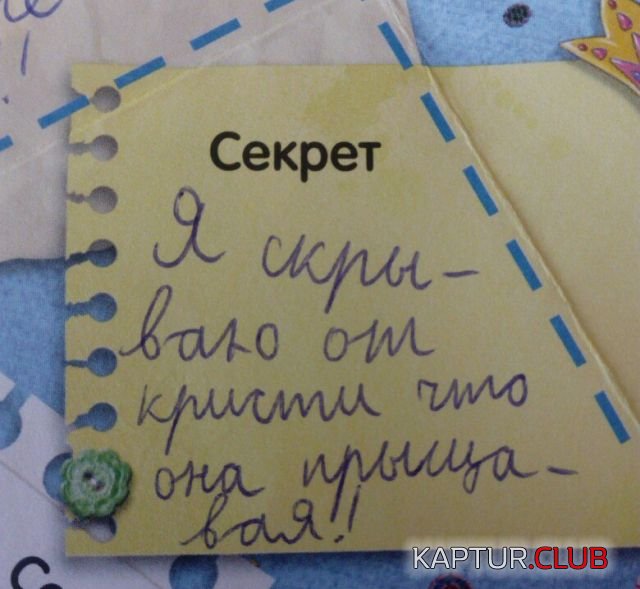 Секрет
Я скры-
ваю от
кристи что
она прыща-
вая!
KAPTUR.CLUB